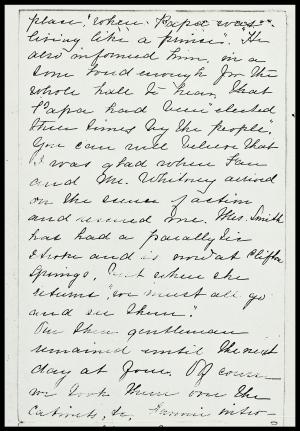 place, "when Papa was
living like a prince". He
also informed him, in a
tone loud enough for the
whole hall to hear, that
Papa had been "elected
three times by the people".
You can well believe that
I was glad when Fan
and Mr. Whitney arrived
on the scene of action
and rescued me. Mrs. Smith
has had a paralytic
stroke and is now at Clifton
Springs, but when she
returns, "we must all go
and see them".
Our three gentlemen
remained until the next
day at four. Of course
we took them over the
Cabinets, &c. Fannie intro-